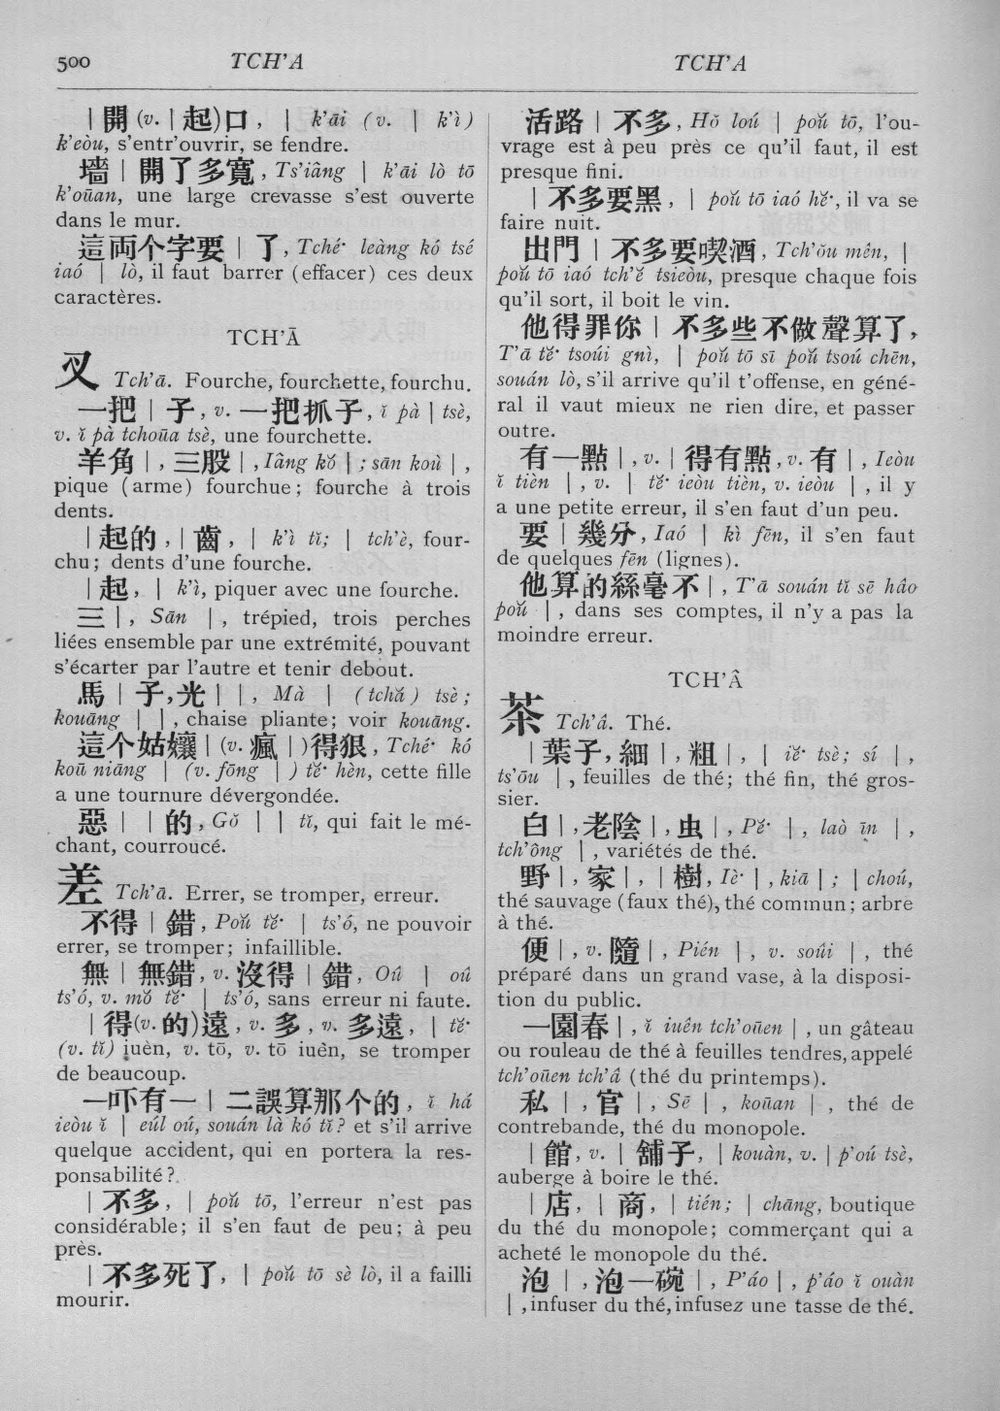 500 TCH’A TCH’A
| 開 (v. | 起) 口, | k’āi (v. | k’ì)
k’eòu, s’entr’ouvrir, se fendre.
墻 | 開了多寬, Ts’iâng | k’āi lò tō
k’oūan, une large crevasse s’est ouverte
dans le mur.
這両个字要 | 了, Tché· leàng kó tsé
iaó | lò, il faut barrer (effacer) ces deux
caractères.
TCH’Ā
叉 Tch’ā. Fourche, fourchette, fourchu.
一把 | 子, v. 一把抓子, ĭ pà | tsè,
v. ĭ pà tchoūa tsè, une fourchette.
羊角 |, 三股 |, Iâng kŏ | ; sān koù |,
pique (arme) fourchue; fourche à trois
dents.
| 起的, | 齒, | k’ì tĭ; | tch’è, four-
chu; dents d’une fourche.
| 起, | k’ì, piquer avec une fourche.
三 |, Sān |, trépied, trois perches
liées ensemble par une extrémité, pouvant
s’écarter par l’autre et tenir debout.
馬 | 子, 光 | |, Mà | (tchă) tsè;
kouāng | |, chaise pliante; voir kouāng.
這个姑孃 | (v. 瘋 | )得狠, Tché· kó
koū niāng | (v. fōng | ) tĕ· hèn, cette fille
a une tournure dévergondée.
惡 | | 的, Gŏ | | tĭ, qui fait le mé-
chant, courroucé.
差 Tch’ā. Errer, se tromper, erreur.
不得 | 錯, Poŭ tĕ· | ts’ó, ne pouvoir
errer, se tromper; infaillible.
無 | 無錯, v. 沒得 | 錯, Oû | oû
ts’ó, v. mŏ tĕ· | ts’ó, sans erreur ni faute.
| 得(v. 的)遠, v. 多, v. 多遠, | tĕ·
(v. tĭ) iuèn, v. tō, v. tō iuèn, se tromper
de beaucoup.
一吓有一 | 二誤算那个的, ĭ há
ieòu ĭ | eúl oú, souán là kó tĭ? et s’il arrive
quelque accident, qui en portera la res-
ponsabilité?
| 不多, | poŭ tō, l’erreur n’est pas
considérable; il s’en faut de peu; à peu
près.
| 不多死了, | poŭ tō sè lò, il a failli
mourir.
活路 | 不多, Hŏ loú | poŭ tō, l’ou-
vrage est à peu près ce qu’il faut, il est
presque fini.
| 不多要黑, | poŭ tō iaó hĕ·, il va se
faire nuit.
出門 | 不多要喫酒, Tch’ŏu mên, |
poŭ tō iaó tch’ĕ tsieòu, presque chaque fois
qu’il sort, il boit le vin.
他得罪你 | 不多些不做聲算了,
T’ā tĕ· tsoúi gnì, | poŭ tō sī poŭ tsoú chēn,
souán lò, s’il arrive qu’il t’offense, en géné-
ral il vaut mieux ne rien dire, et passer
outre.
有一點 |, v. | 得有點, v. 有 |, Ieòu
ĭ tièn |, v. | tĕ· ieòu tièn, v. ieòu |, il y
a une petite erreur, il s’en faut d’un peu.
要 | 幾分, Iaó | kì fēn, il s’en faut
de quelques fēn (lignes).
他算的絲毫不 |, T’ā souán tĭ sē hâo
poŭ |, dans ses comptes, il n’y a pas la
moindre erreur.
TCH’Â
茶 Tch’â. Thé.
| 葉子, 細 |, 粗 |, | iĕ· tsè; sí |,
ts’ōu |, feuilles de thé; thé fin, thé gros-
sier.
白 |, 老陰 |, 虫 |, Pĕ· |, laò īn |,
tch’ông |, variétés de thé.
野 |, 家 |, | 樹, Iè· |, kiā | ; | choú,
thé sauvage (faux thé), thé commun; arbre
à thé.
便 |, v. 隨 |, Pién |, v. soúi |, thé
préparé dans un grand vase, à la disposi-
tion du public.
一園春 |, ĭ iuên tch’oūen |, un gâteau
ou rouleau de thé à feuilles tendres, appelé
tch’oūen tch’â (thé du printemps).
私 |, 官 |, Sē |, koūan |, thé de
contrebande, thé du monopole.
| 館, v. | 舖子, | kouàn, v. | p’oú tsè,
auberge à boire le thé.
| 店, | 商, | tién; | chāng, boutique
du thé du monopole; commerçant qui a
acheté le monopole du thé.
泡 |, 泡一碗 |, P’áo |, p’áo ĭ ouàn
|, infuser du thé, infusez une tasse de thé.